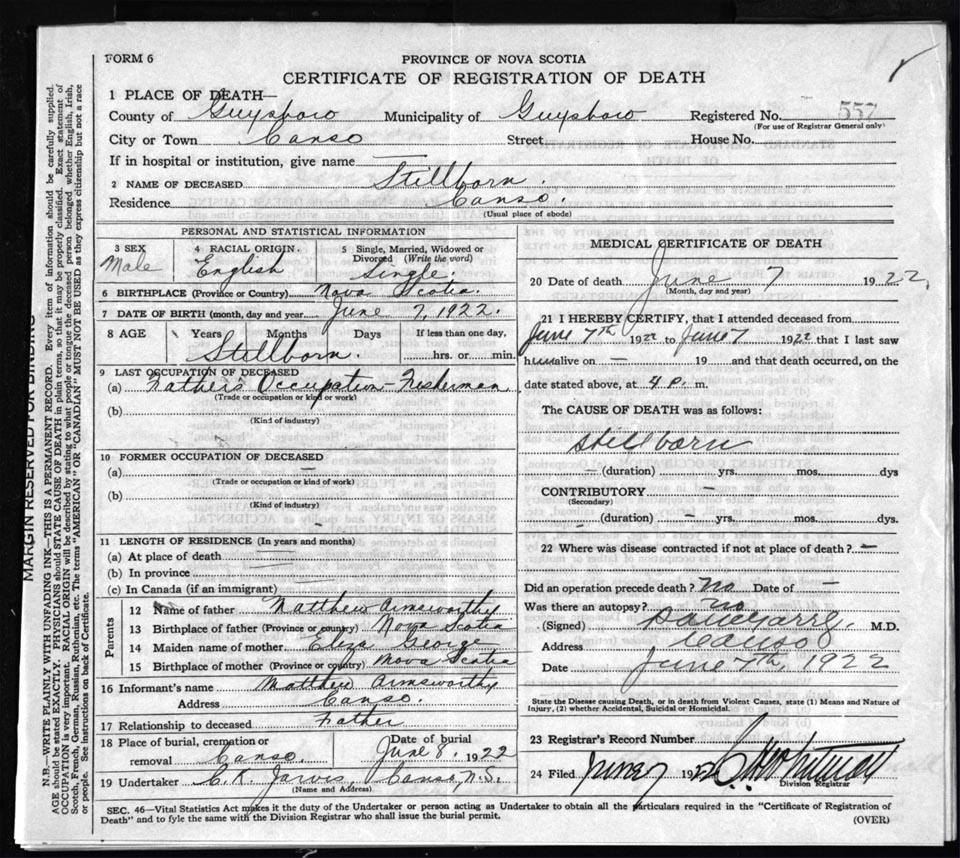 FORM 6
PROVINCE OF NOVA SCOTIA
CERTIFICATE OF REGISTRATION OF DEATH
1 PLACE OF DEATH—
County of Guysboro Municipality of Guysboro Registered No. 557
(For use of Registrar General only)
City or Town Canso Street House No.
If in hospital or institution, give name —
2 NAME OF DECEASED Stillborn.
Residence Canso.
(Usual place of abode)
PERSONAL AND STATISTICAL INFORMATION
3 SEX 4 RACIAL ORIGIN. 5 Single, Married, Widowed or
Divorced (Write the word)
Male English Single.
6 BIRTHPLACE (Province or Country) Nova Scotia.
7 DATE OF BIRTH (month, day and year) June 7, 1922.
8 AGE Years Months Days If less than one day,
Stillborn. hrs. or min.
9 LAST OCCUPATION OF DECEASED
(a) Father's Occupation - Fisherman
(Trade or occupation or kind or work)
(b)
(Kind of industry)
10 FORMER OCCUPATION OF DECEASED
(a) —
(Trade or occupation or kind of work)
(b)
(Kind of industry)
11 LENGTH OF RESIDENCE (In years and months)
(a) At place of death
(b) In province
(c) In Canada (if an immigrant)
Parents
12 Name of father Matthew Aimsworthy
13 Birthplace of father (Province or country) Nova Scotia
14 Maiden name of mother Eliza George
15 Birthplace of mother (Province or country) Nova Scotia
16 Informant's name Matthew Aimsworthy
Address Canso.
17 Relationship to deceased Father
18 Place of burial, cremation or Date of burial
removal Canso. June 8. 1922
19 Undertaker C. K. Jarvis, Canso, N.S.
(Name and Address)
MEDICAL CERTIFICATE OF DEATH
20 Date of death June 7 1922.
(Month, day and year)
21 I HEREBY CERTIFY, that I attended deceased from
June 7th 1922 to June 7 1922 that I last saw
h alive on — 19 and that death occurred, on the
date stated above, at 4 p. m.
The CAUSE OF DEATH was as follows:
Stillborn
— (duration) yrs. mos. dys
CONTRIBUTORY —
(Secondary)
(duration) — yrs. mos. dys
22 Where was disease contracted if not at place of death? —
Did an operation precede death? No Date of —
Was there an autopsy? no
(Signed) M.D.
Address Canso
Date June 7th, 1922
State the Disease causing Death, or in death from Violent Causes, state (1) Means and Nature of
Injury, (2) whether Accidental, Suicidal or Homicidal.
23 Registrar's Record Number
24 Filed June 7 1922
Division Registrar
SEC. 46—Vital Statistics Act makes it the duty of the Undertaker or person acting as Undertaker to obtain all the particulars required in the "Certificate of Registration of
Death" and to fyle the same with the Division Registrar who shall issue the burial permit.
(OVER)
MARGIN RESERVED FOR BINDING
N.B.—WRITE PLAINLY WITH UNFADING INK—THIS IS A PERMANENT RECORD. Every item of information should be carefully supplied.
AGE should be stated EXACTLY. PHYSICIANS should STATE CAUSE OF DEATH in plain terms, so that it may be properly classified. Exact statement of
OCCUPATION is very important. RACIAL ORIGIN will be described by stating to what people or tongue the deceased person belonged whether English, Irish,
Scotch, French, German, Russian, Ruthenian, etc. The terms "AMERICAN" OR "CANADIAN" MUST NOT BE USED as they express citizenship but not a race
or people. See instructions on back of Certificate.